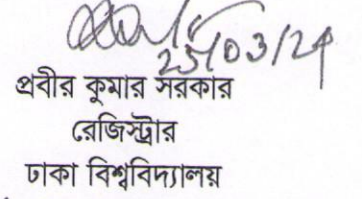 25/03/24
প্রবীর কুমার সরকার
রেজিস্ট্রার
ঢাকা বিশ্ববিদ্যালয়